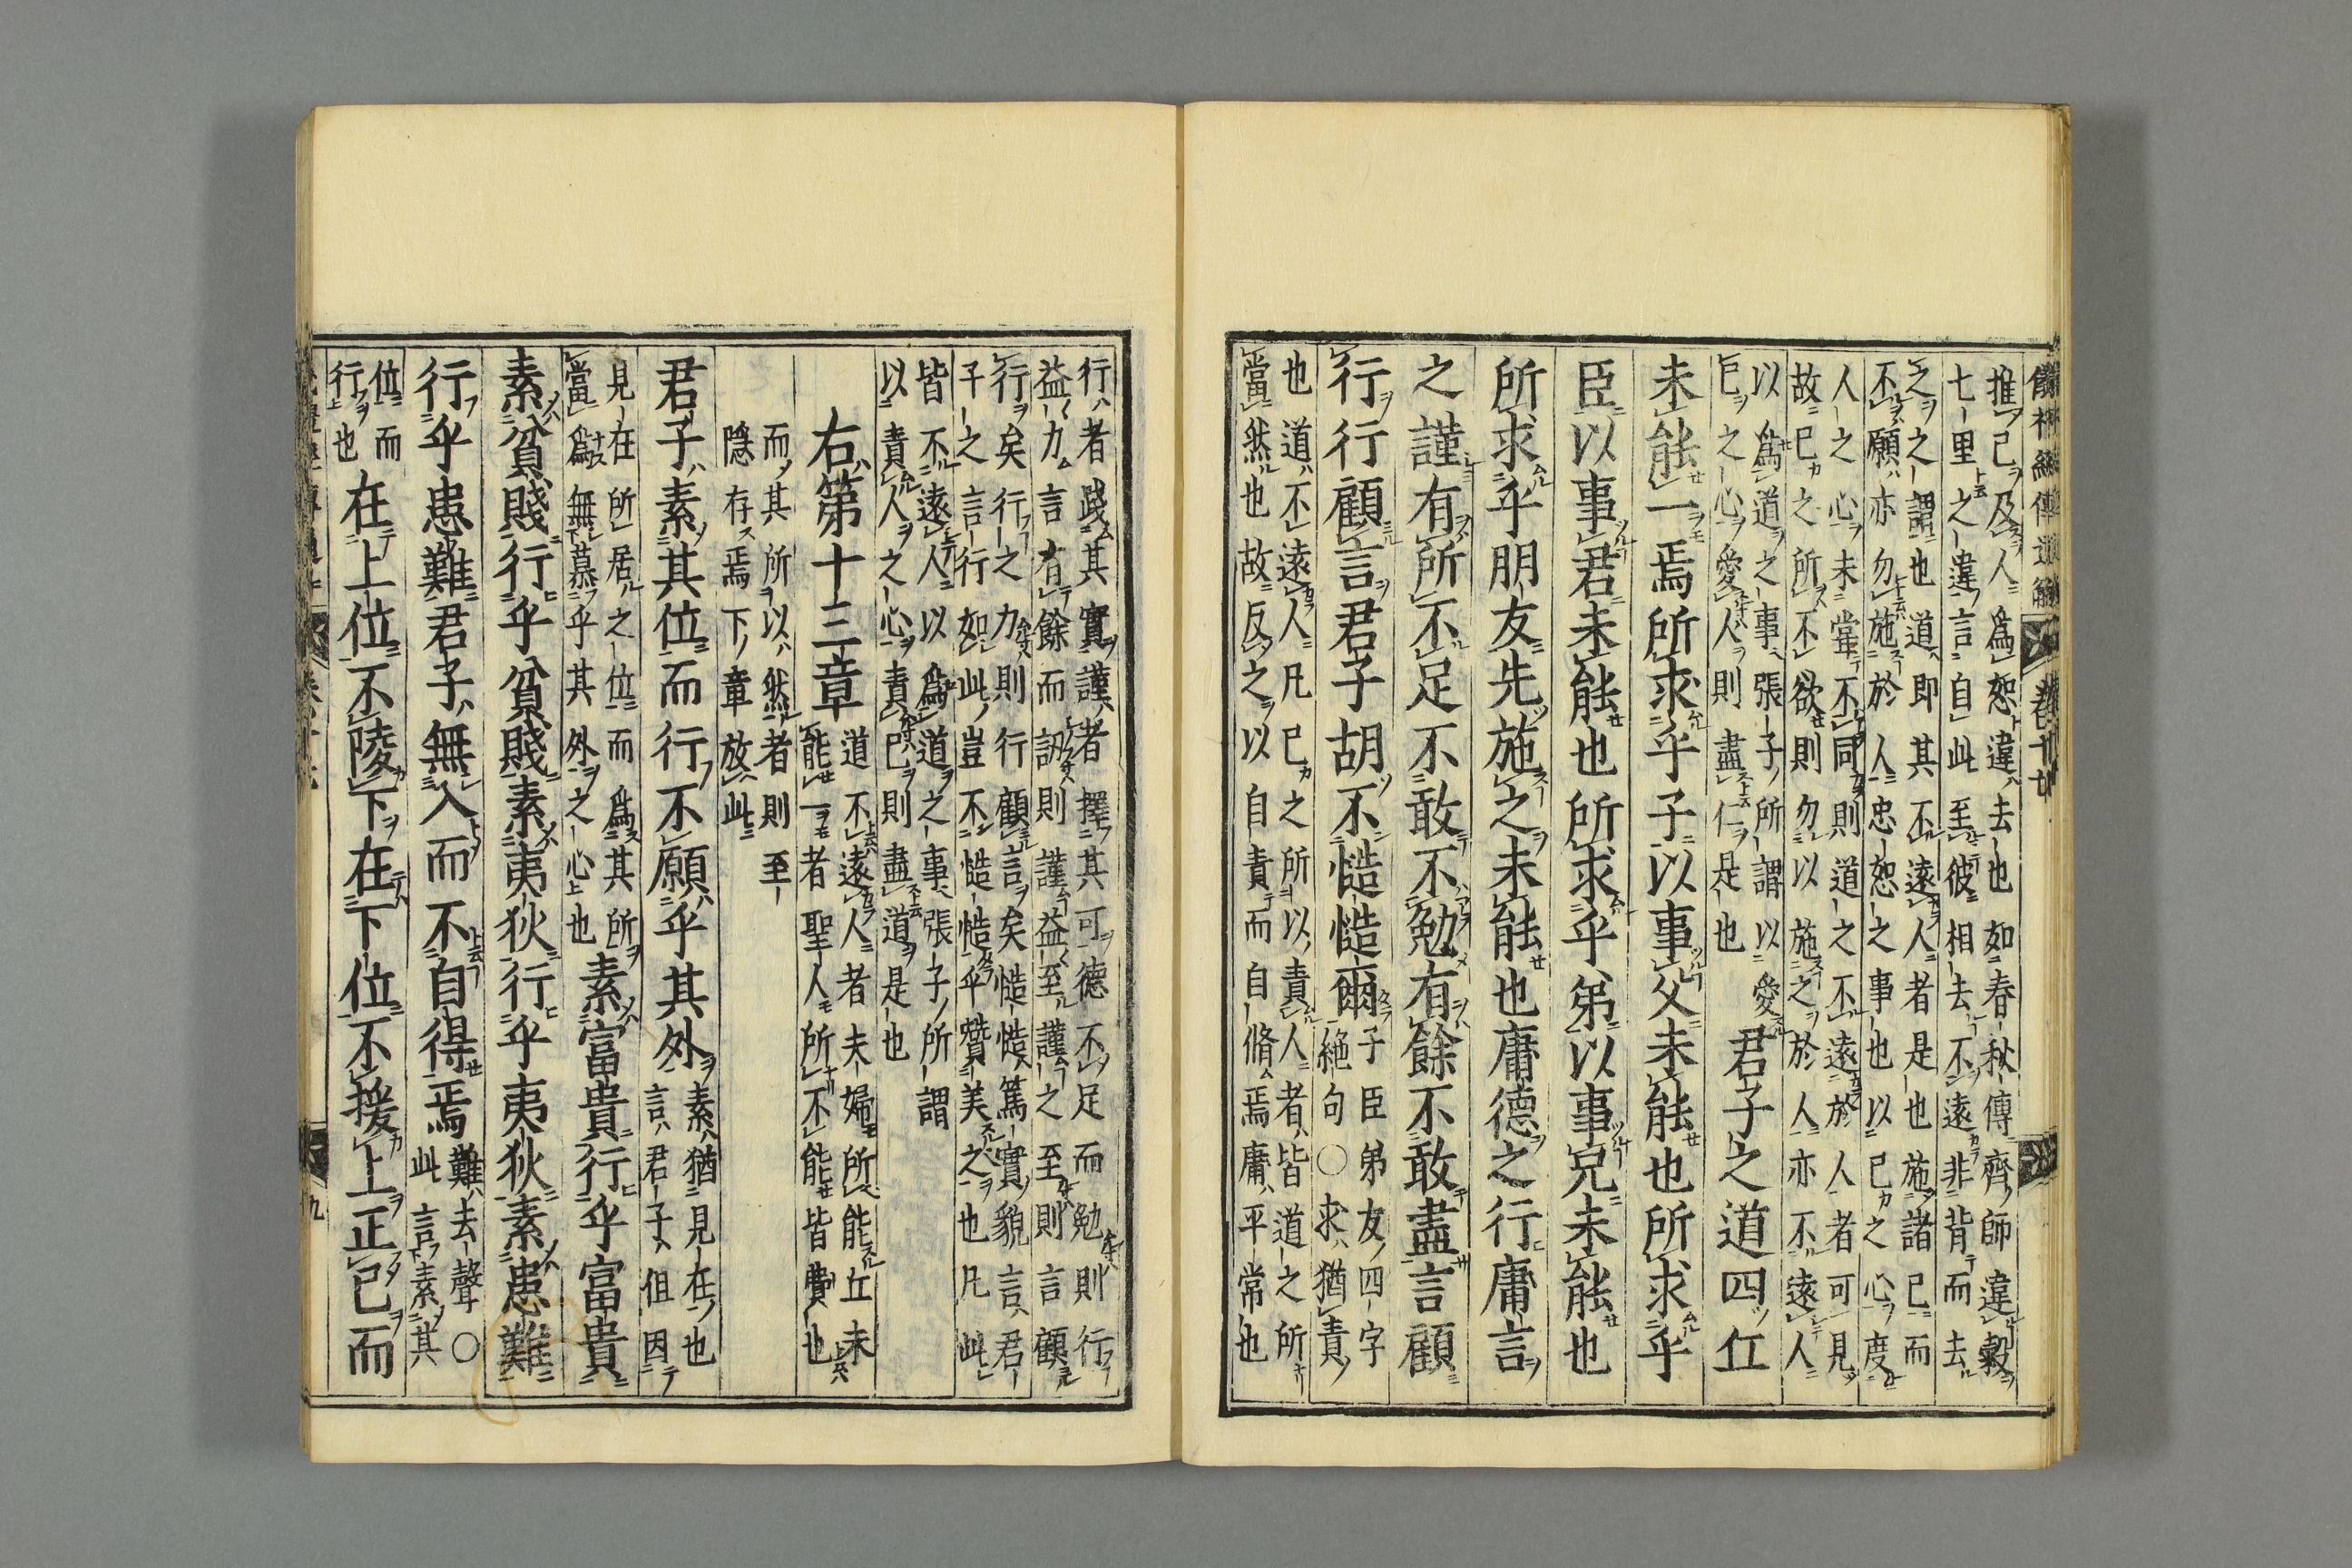 儀禮經傳通解
推己及人爲恕違去也如春秋傳齊師違穀
七里之違言自此至彼相去不遠非背而去
之之謂也道即其不遠人者是也施諸己而
不願亦勿施於人忠恕之事也以己之心度
人之心未嘗不同則道之不遠於人者可見
故己之所不欲則勿以施之於人亦不遠人
以爲道之事張子所謂以愛
己之心愛人則盡仁是也
君子之道四丘
未能一焉所求乎子以事父未能也所求乎
臣以事君未能也所求乎弟以事兄未能也
所求乎朋友先施之未能也庸德之行庸言
之謹有所不足不敢不勉有餘不敢盡言顧
行行顧言君子胡不慥慥爾
子臣弟友四字
絶句○求猶責
也道不遠人凡己之所以責人者皆道之所
當然也故反之以自責而自脩焉庸平常也
行者踐其實謹者擇其可德不足而勉則行
益力言有餘而訒則謹益至謹之至則言顧
行矣行之力則行顧言矣慥慥篤實貌言君
子之言行如此豈不慥慥乎贊美之也凡此
皆不遠人以爲道之事張子所謂
以責人之心責己則盡道是也
右第十三章
道不遠人者夫婦所能丘未
能一者聖人所不能皆費也
而其所以然者則至
隱存焉下章放此
君子素其位而行不願乎其外
素猶見在也
言君子但因
見在所居之位而爲其所
當爲無慕乎其外之心也
素富貴行乎富貴
素貧賤行乎貧賤素夷狄行乎夷狄素患難
行乎患難君子無入而不自得焉
難去聲○
此言素其
位而
行也
在上位不陵下在下位不援上正己而
九